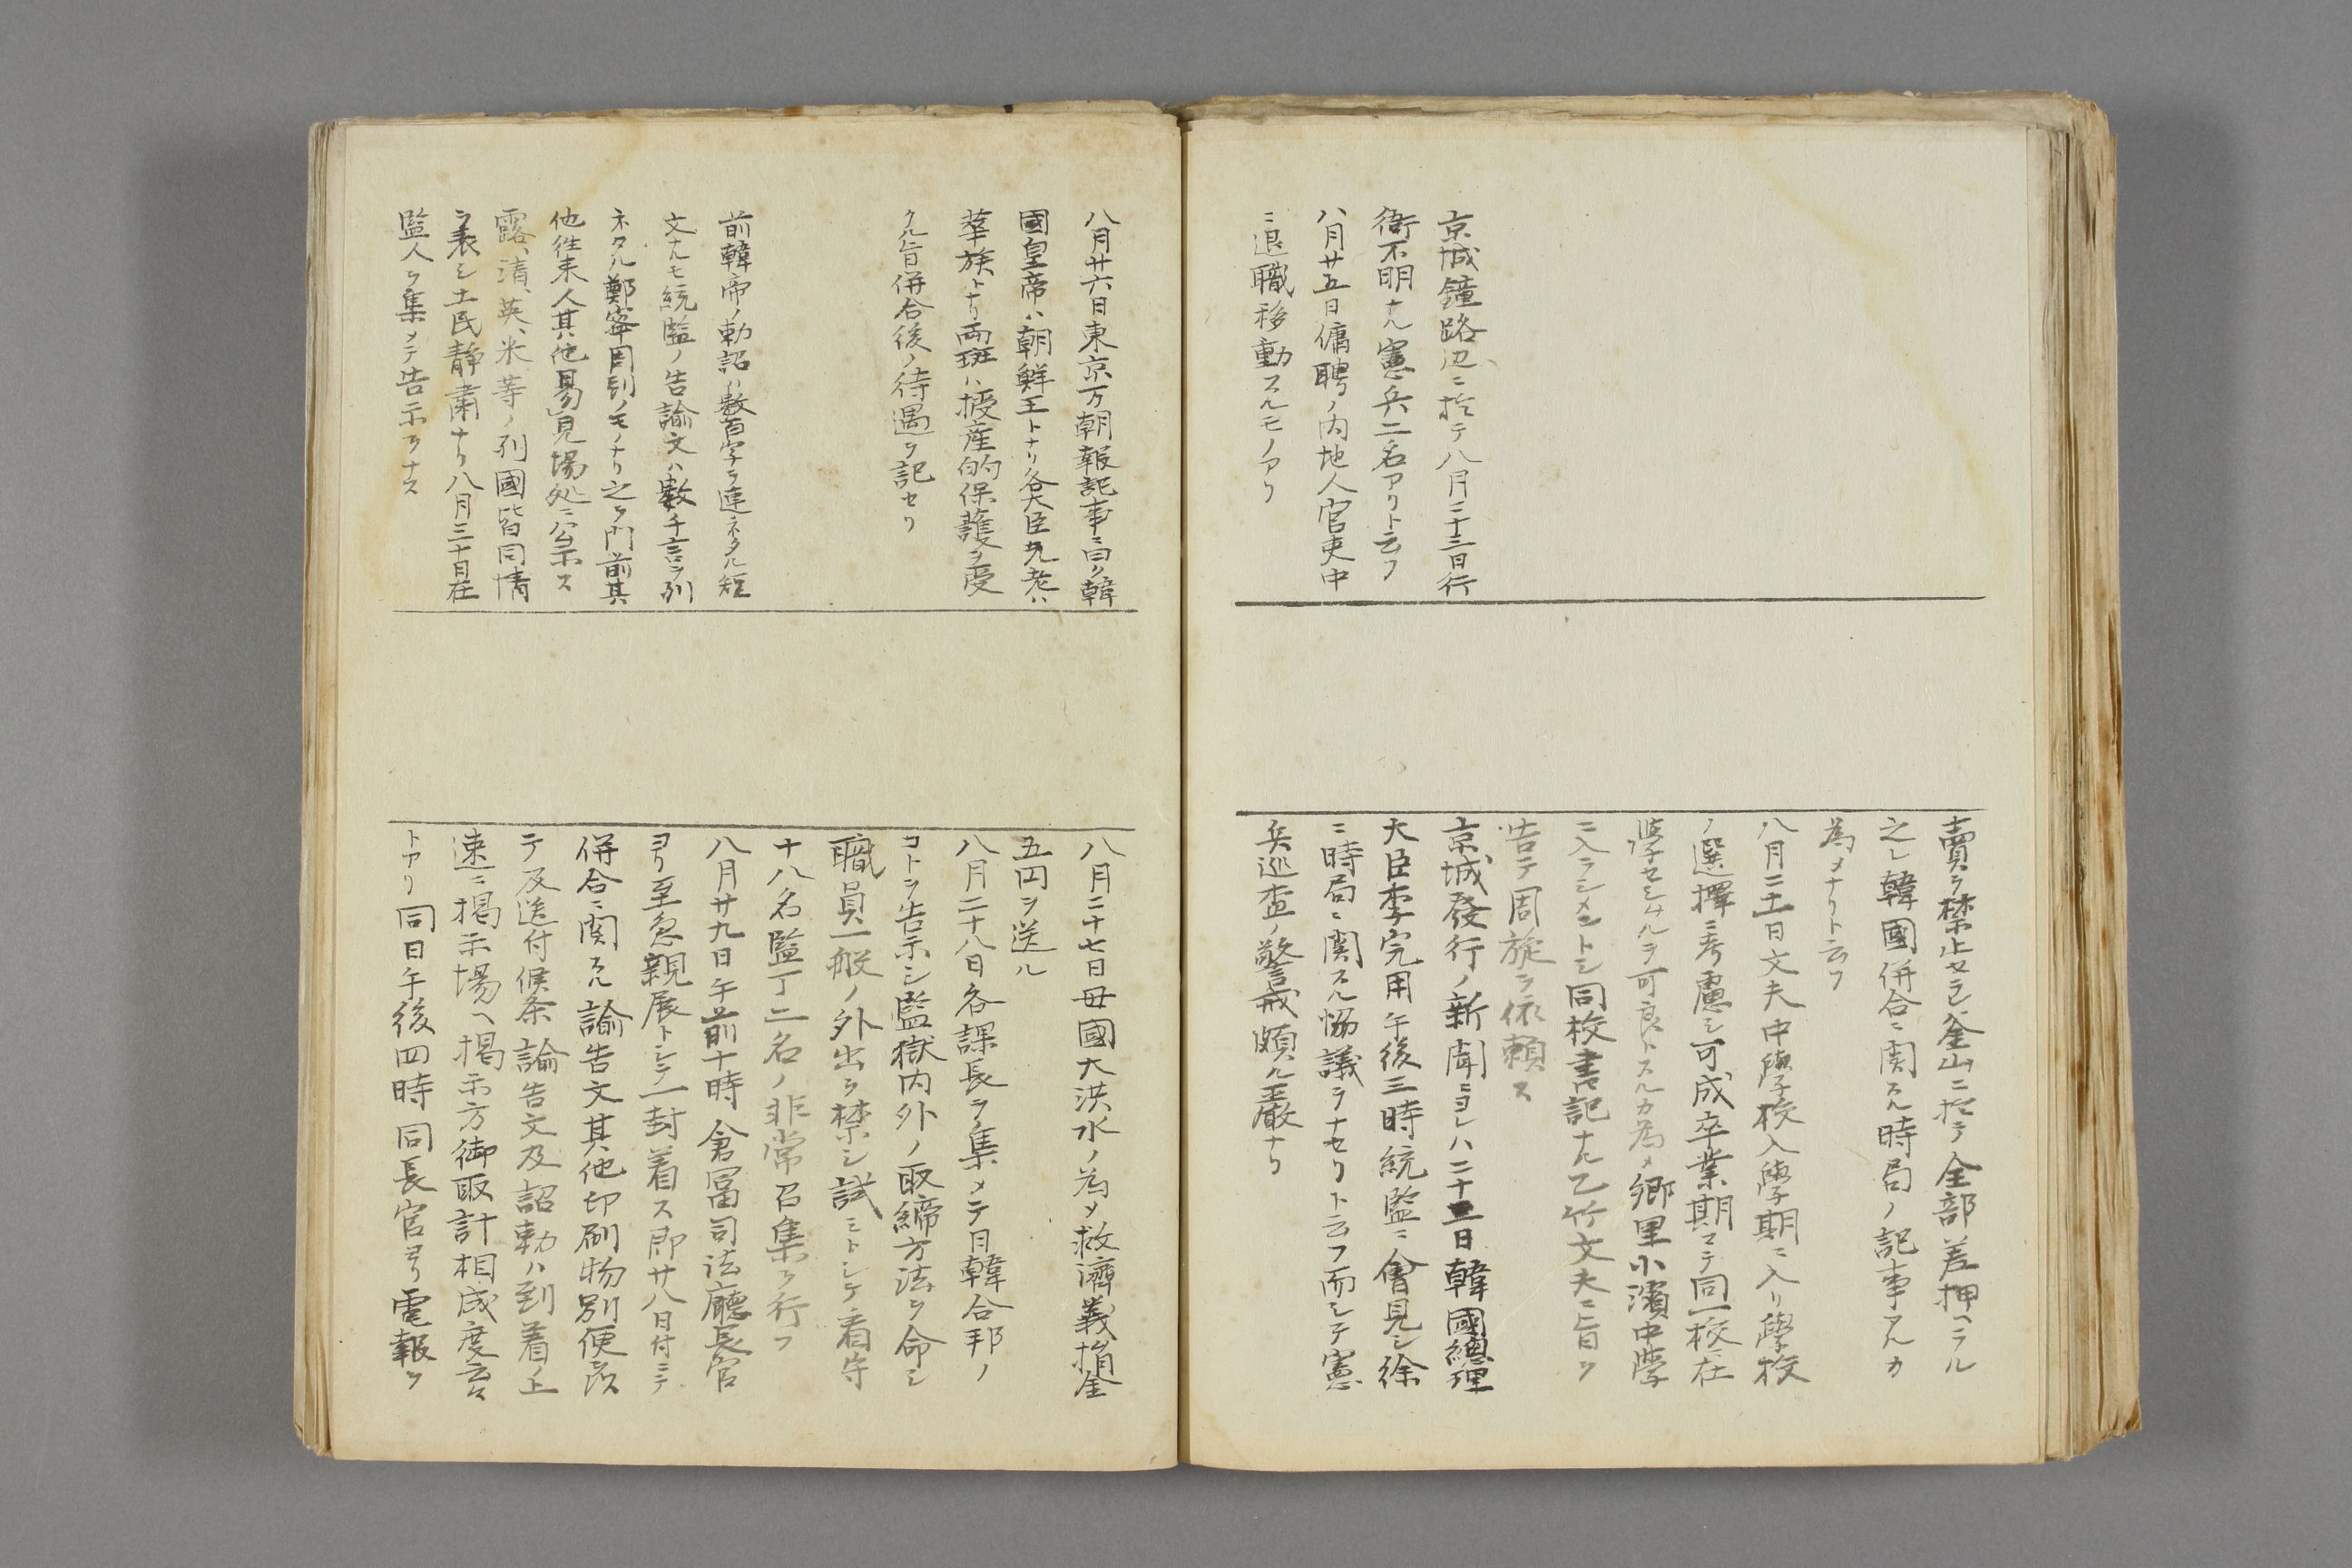 京城鐘路辺ニ於テ八月二十三日行
衛不明ナル憲兵二名アリト云フ
八月廿五日傭聘ノ内地人官吏中
ニ退職移動スルモノアリ
賣ヲ禁止セラレ釜山ニ於テ全部差押ヘラル
之レ韓國併合ニ関スル時局ノ記事アルカ
為メナリト云フ
八月二十一日文夫中學校入學期ニ入リ學校
ノ選擇ニ考慮シ可成卒業期マテ同一校ニ在
學セシムルヲ可良トスルカ為メ郷里小濱中學
ニ入ラシメントシ同校書記ナル乙竹文夫ニ旨ヲ
告テ周旋ヲ依頼ス
京城發行ノ新聞ニヨレハ二十二日韓國總理
大臣李完用午後三時統監ニ會見シ徐
ニ時局ニ関スル協議ヲナセリト云フ而シテ憲
兵巡査ノ警戒頗ル嚴ナリ
八月廿六日東京万朝報記事ニ曰ク韓
國皇帝ハ朝鮮王トナリ各大臣元老ハ
華族トナリ両班ハ授産的保護ヲ受
クル旨併合後ノ待遇ヲ記セリ
前韓帝ノ勅詔ハ數百字ヲ連ネタル短
文ナルモ統監ノ告諭文ハ數千言ヲ列
ネタル鄭寧周到ノモノナリ之ヲ門前其
他往来人其他易見場処ニ公示ス
露、清、英、米等ノ列國皆同情
ヲ表シ土民静肅ナリ八月三十日在
監人ヲ集メテ告示ヲナス
八月二十七日母國大洪水ノ為メ救濟義捐金
五円ヲ送ル
八月二十八日各課長ヲ集メテ日韓合邦ノ
コトヲ告示シ監獄内外ノ取締方法ヲ命シ
職員一般ノ外出ヲ禁シ試ミトシテ看守
十八名監丁二名ノ非常召集ヲ行フ
八月廿九日午前十時倉冨司法廳長官
ヨリ至急親展トシテ一封着ス即廿八日付ニテ
併合ニ関スル諭告文其他印刷物別便ヲ以
テ及送付候条諭告文及詔勅ハ到着ノ上
速ニ掲示場ヘ掲示方御取計相成度云々
トアリ同日午後四時同長官ヨリ電報ヲ